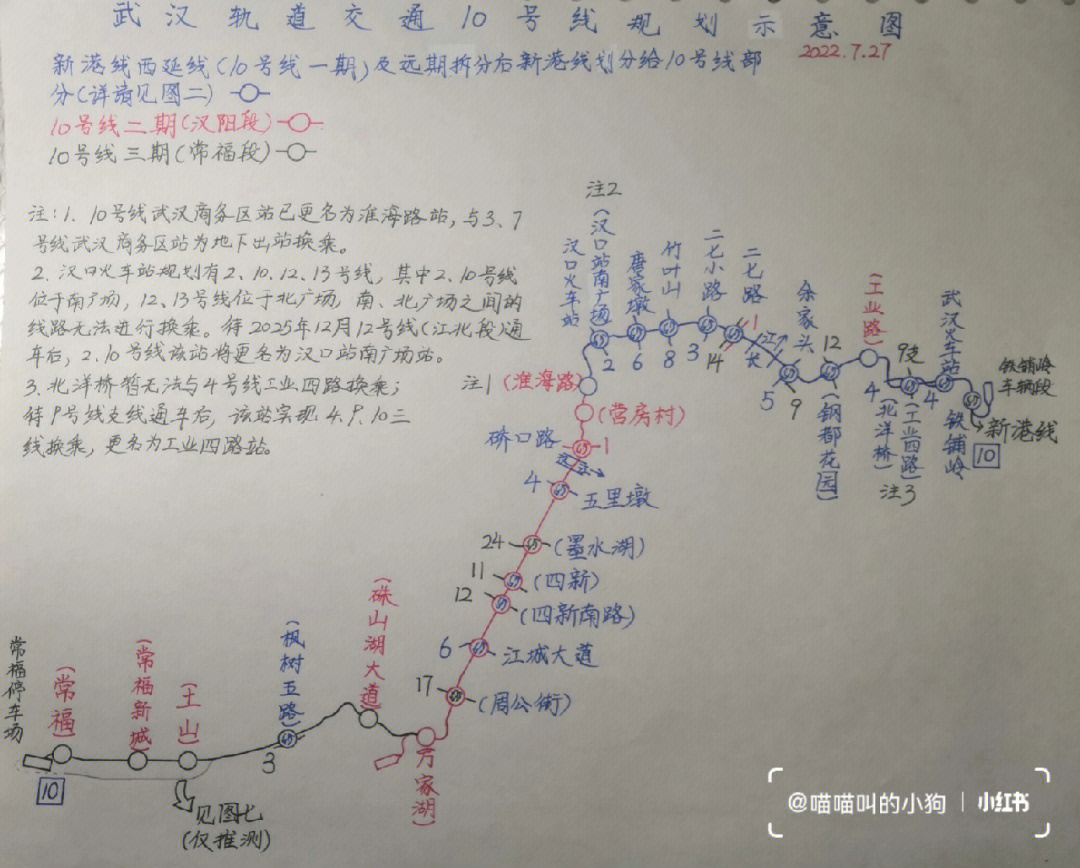 武汉轨道交通10号线规划示意图
2022.7.27
新港线西延线(10号线一期)及远期拆分后新港线划分给10号线部
分(详请见图二)
10号线二期(汉阳段)
10号线三期(常福段)
注:1. 10号线武汉商务区站已更名为淮海路站,与3、7
号线武汉商务区站为地下出站换乘。
2. 汉口火车站规划有2、10、12、13号线,其中2、10号线
位于南广场,12、13号线位于北广场,南、北广场之间的
线路无法进行换乘。待2025年12月12号线(江北段)通
车后,2、10号线该站将更名为汉口站南广场站。
3. 北洋桥暂无法与4号线工业四路换乘;
待9号线支线通车后,该站实现4、9、10三
线换乘,更名为工业四路站。
注2
汉口火车站
(汉口站南广场)
2
唐家墩
6
竹叶山
8
二七小路
3
14
二七路
1
长江
余家头
5
9
12
(钢都花园)
(工业路)
4
(北洋桥)
9支
(工业四路)
注3
武汉火车站
4
铁铺岭
铁铺岭
车辆段
新港线
10
注1
(淮海路)
(营房村)
硚口路
1
汉江
4
五里墩
24
(墨水湖)
11
(四新)
12
(四新南路)
6
江城大道
17
(周公街)
(万家湖)
(硃山湖大道)
(枫树五路)
3
(王山)
(常福新城)
(常福)
常福停车场
10
见图七
(仅推测)
@喵喵叫的小狗
小红书